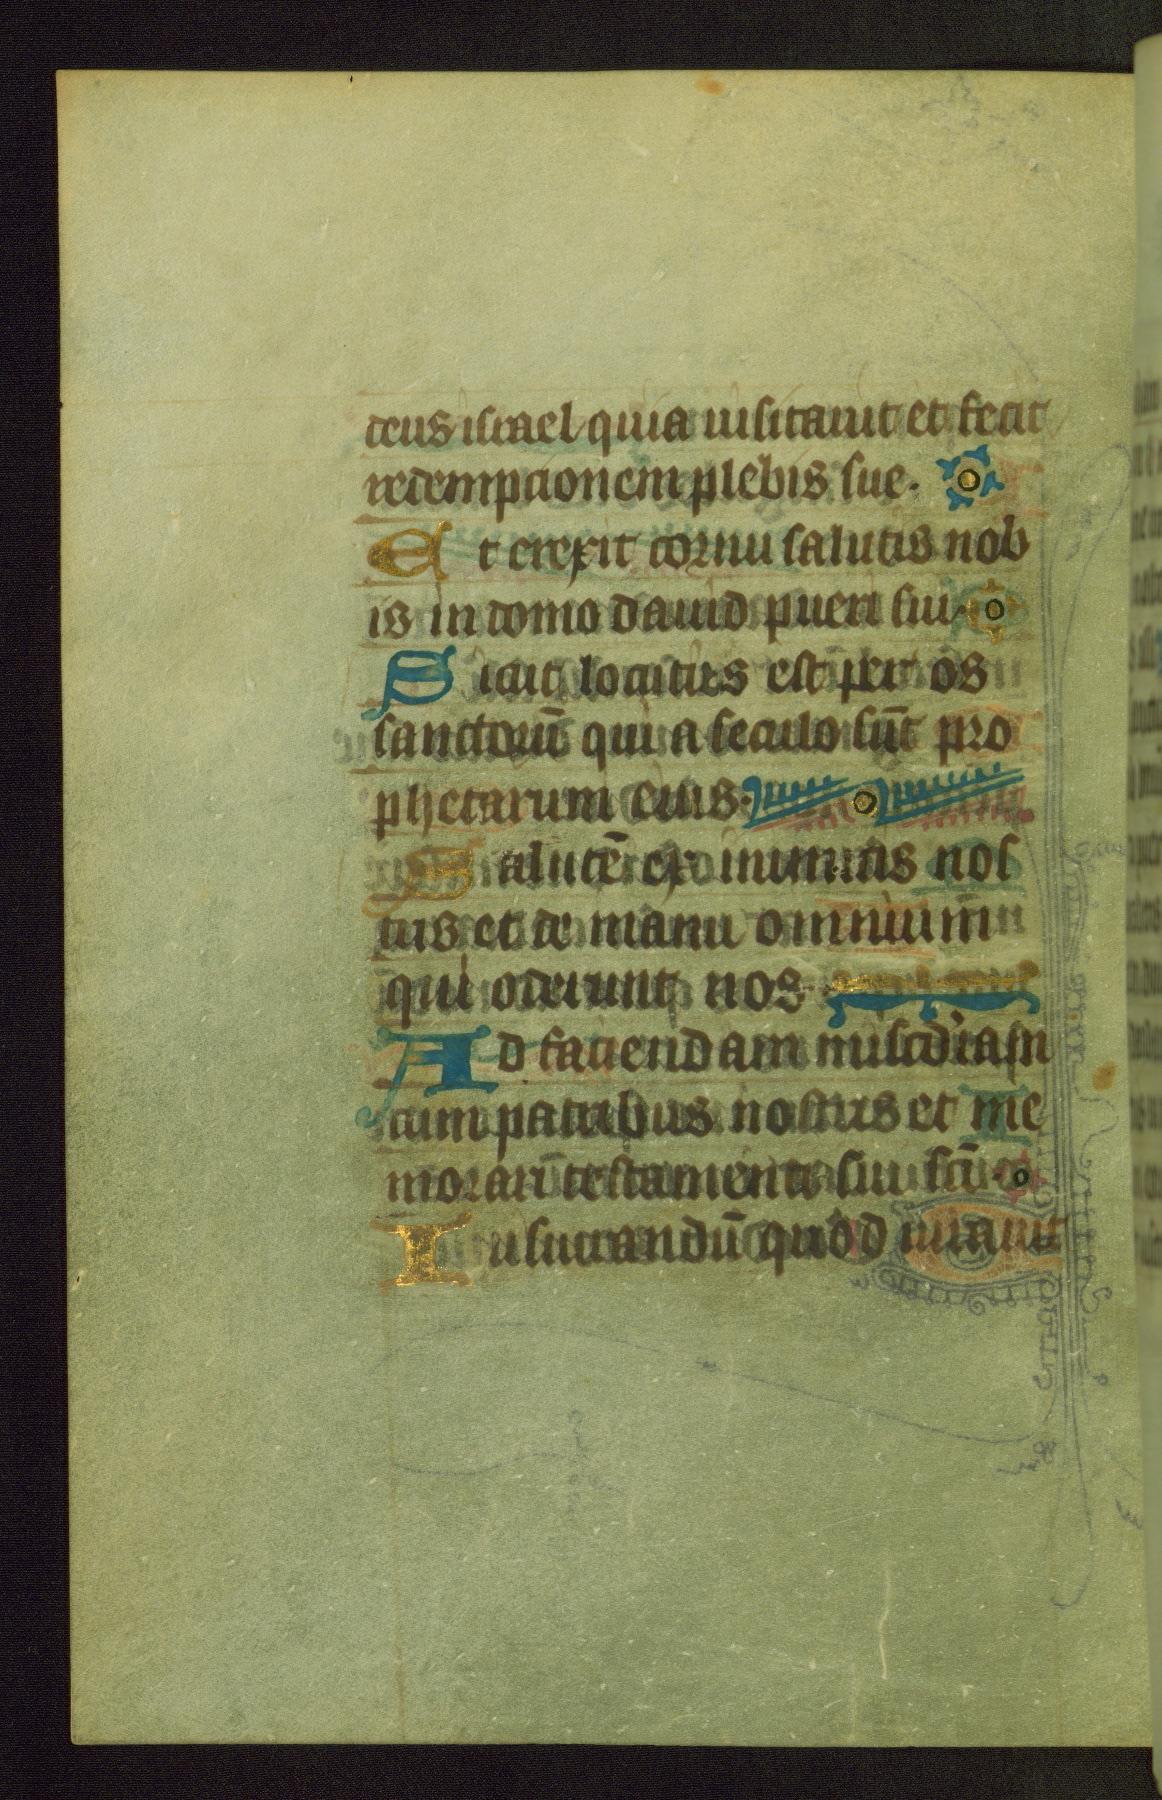 deus israel quia uisitauit et fecit
redempcionem plebis sue.
Et erexit cornu salutis nob
is in domo dauid pueri sui.
Sicut locutus est per os
sanctorū qui a seculo sūt pro
phetarum eius.
Salutē ex inimicis nos
tris et de manu omnium
qui oderunt nos.
Ad faciendam miscd'iam
cum patribus nostris et me
morari testamenti sui scī.
Iusiurandū quod iurauit